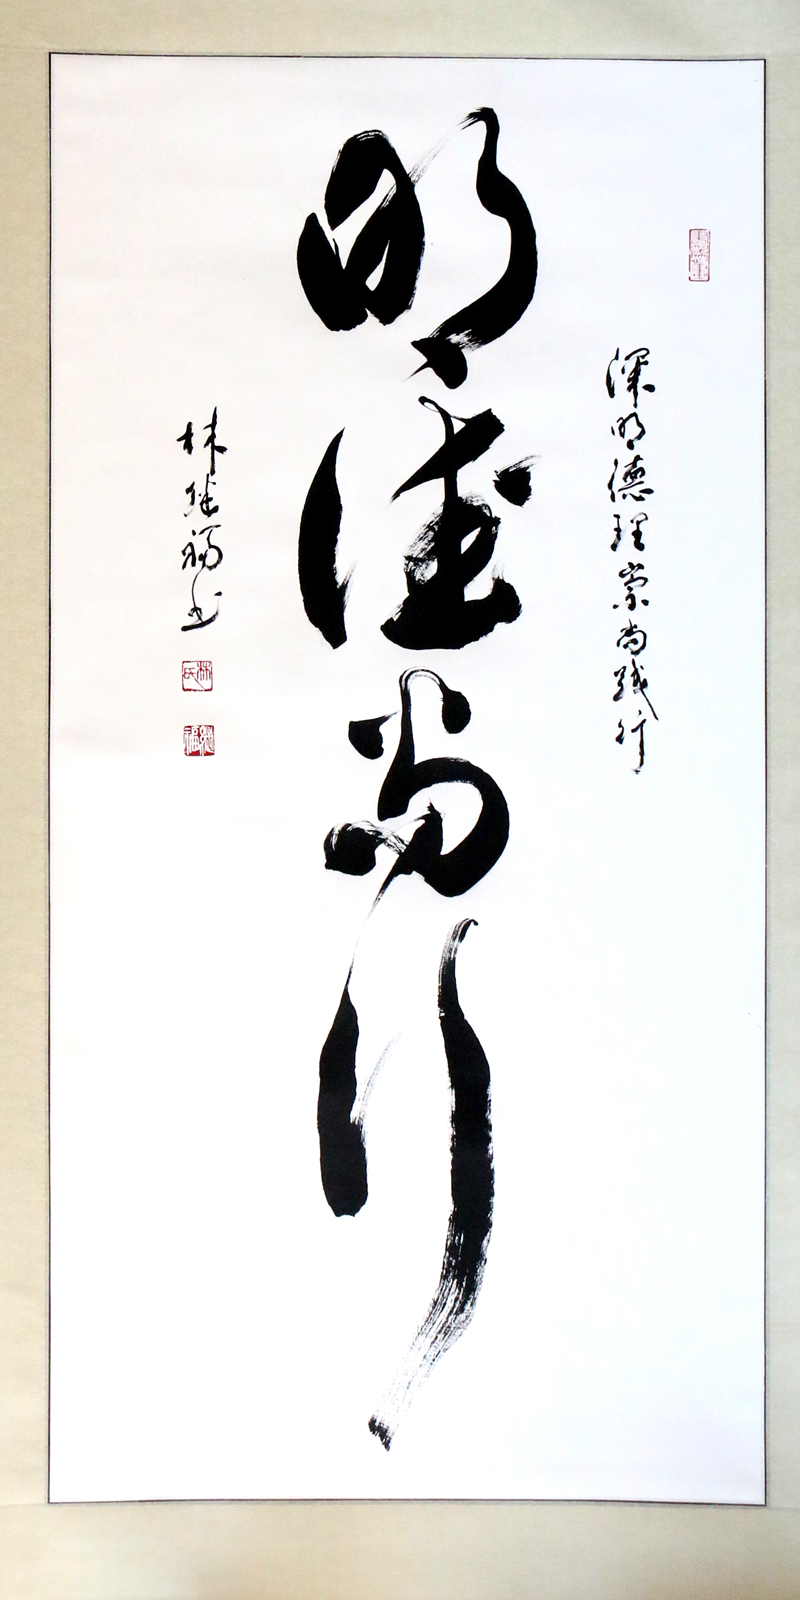 深明德理崇尚践行
明德尚行
林继福书
林氏
继福